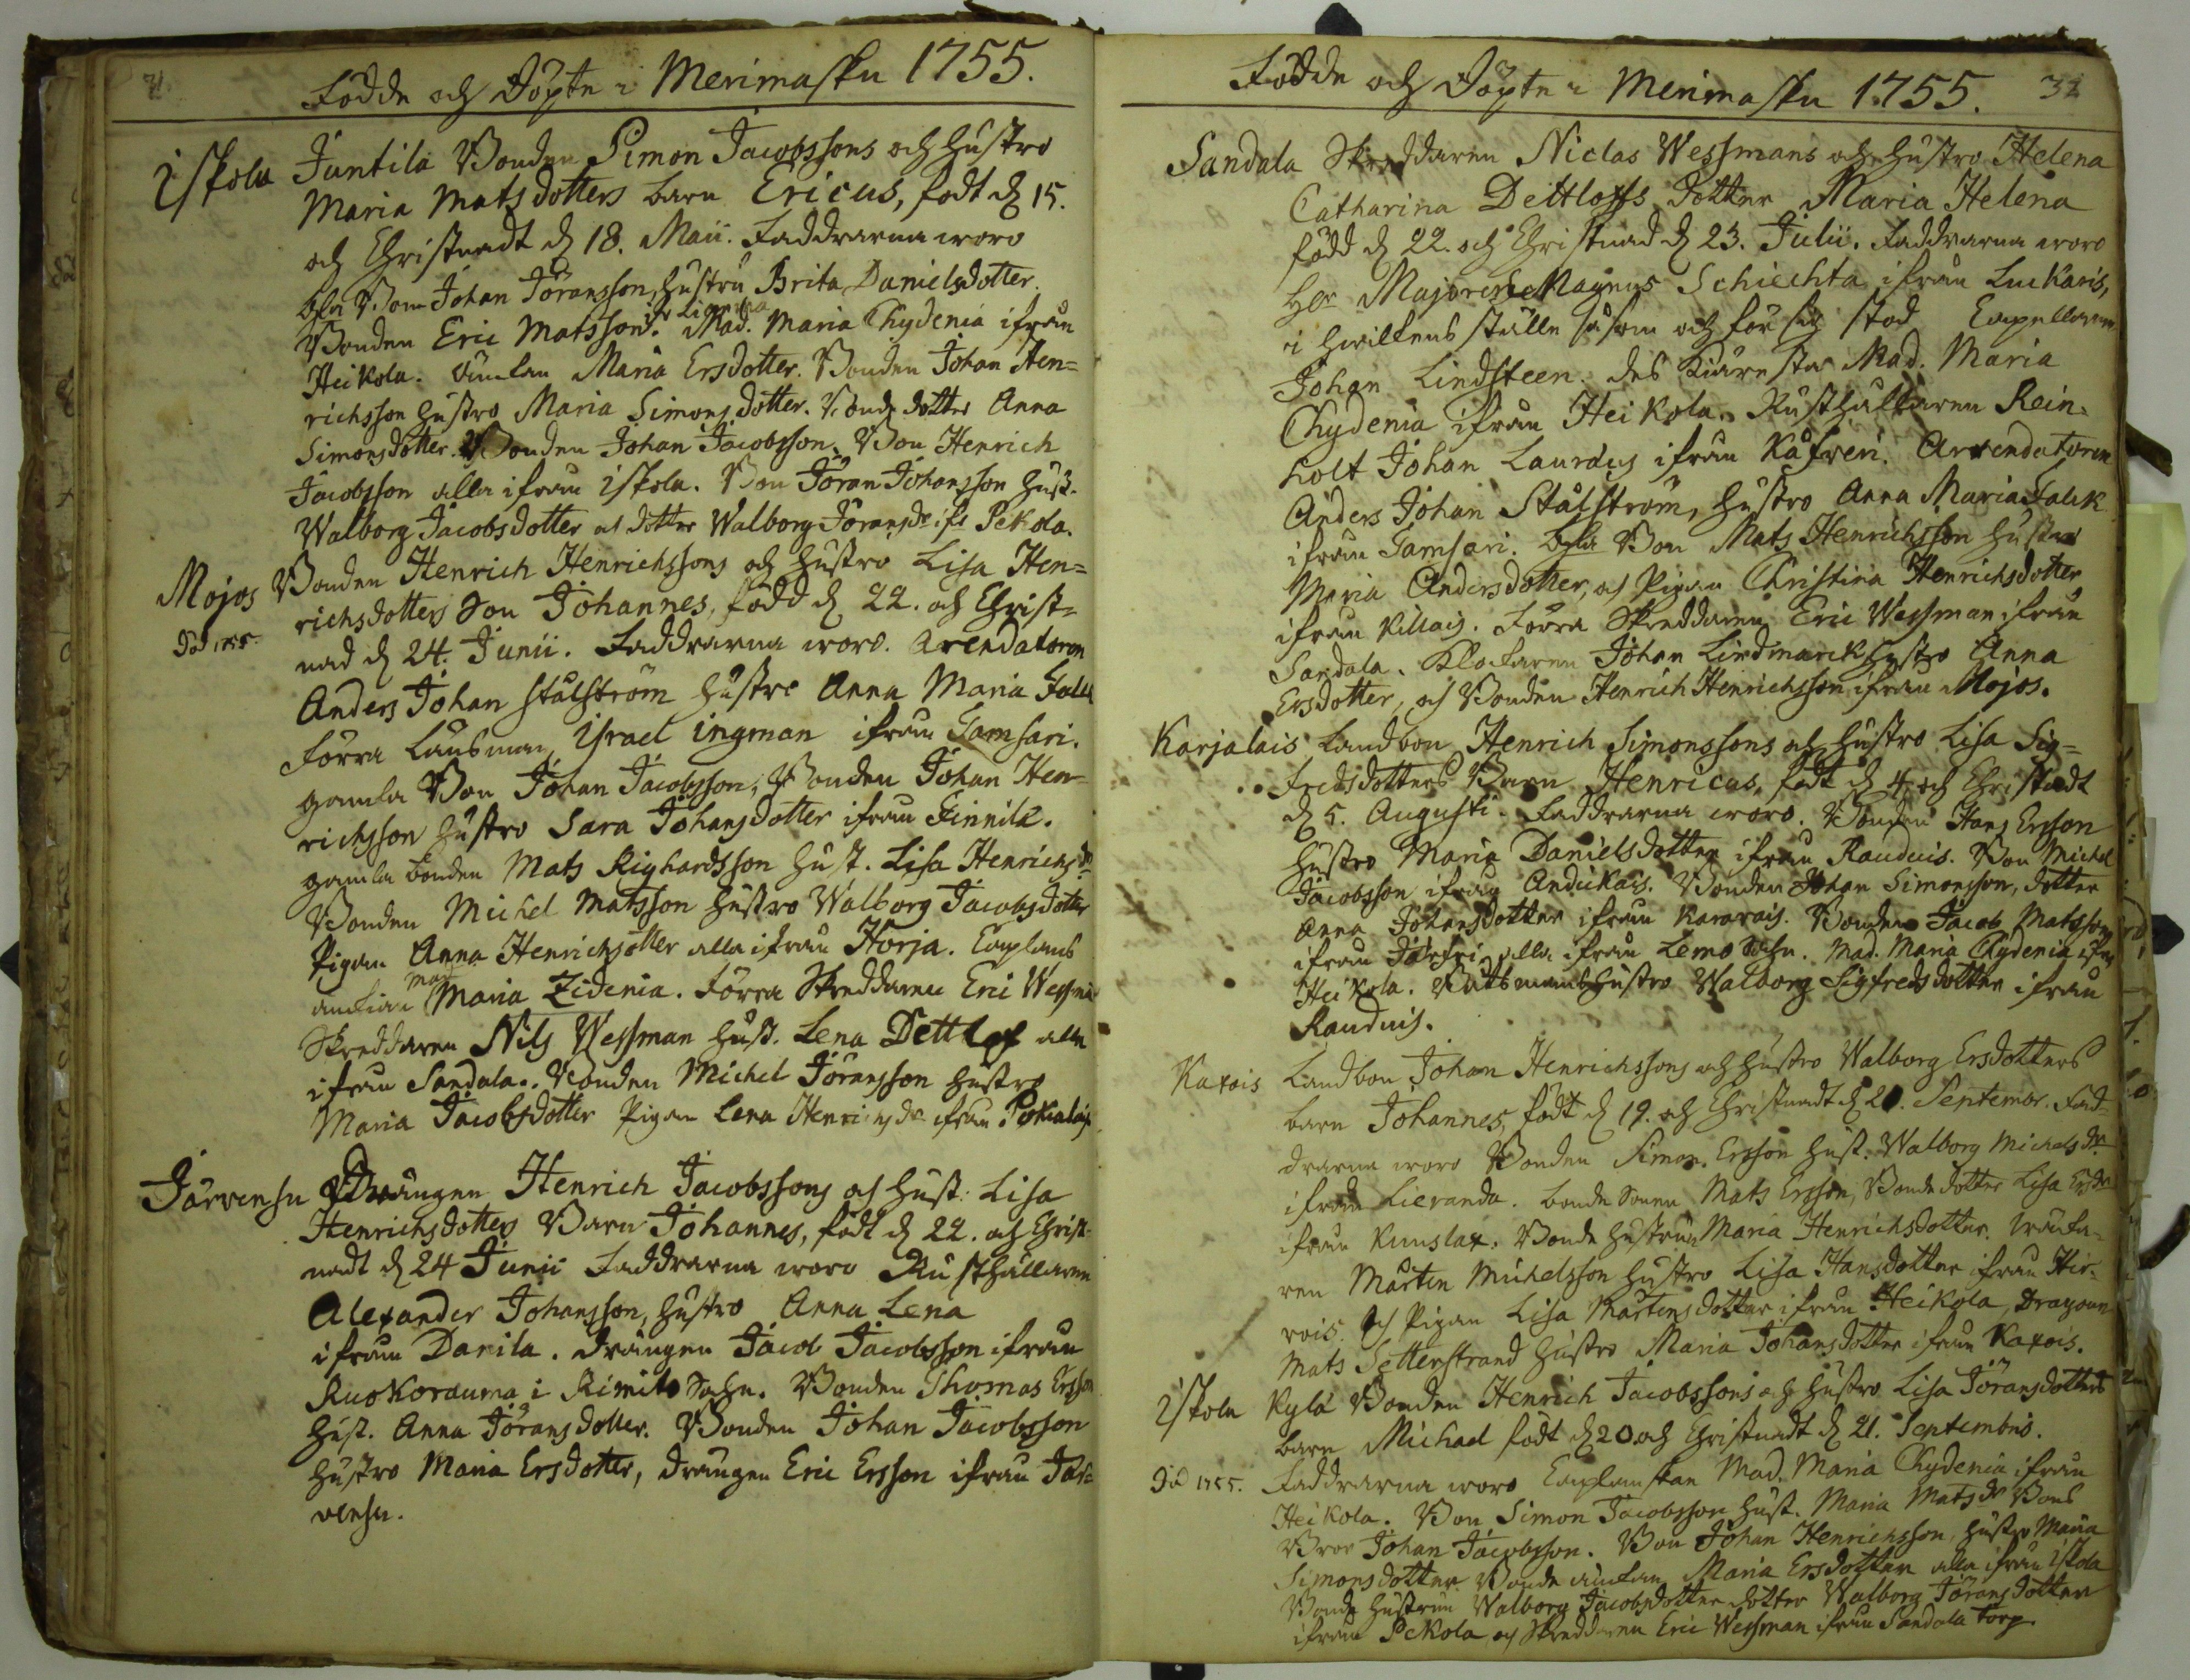 Födde och Döpte i Merimasku 1755.
Iskola Juntila Bonden Simon Jacobssons och hustro
Maria Matsdotters barn Ericus, födt d 15.
och Christnadt d 18. Maii. Faddrarna woro
Bon Johan Jöransson, hustru Brita Danielsdotter.
Bonden Eric Matsson. Mad. Maria Chydenia ifrån
Heikola. änkan Maria Ersdotter. Bonden Johan Hen=
richsson hustro Maria Simonsdotter. Bonde dotter Anna
Simonsdotter. Bonden Johan Jacobsson. Bon Henrich
Jacobsson alla ifrån Iskola. Bon Jöran Johansson hust.
Walborg Jacobsdotter och dotter Walborg Jöransdr ifr Pekola.
Mojos Bonden Henrich Henrichssons och hustro Lisa Hen=
richsdotters Son Johannes, född d 22. och Christ=
Död 1755. nad d 24. Junii. Faddrarna woro. Arendatoren
Anders Johan Stålström hustro Anna Maria Falck
Förra Länsman Israel Ingman ifrån Tamsari.
gamla Bon Johan Jacobsson, Bonden Johan Hen=
richsson hustro Sara Johansdotter ifrån Finnilä.
gamla bonden Mats Righardsson hust. Lisa Henrichsdr
Bonden Michel Matsson hustro Walborg Jacobsdotter
Pigan Anna Henrichsdotter alla ifrån Korja. Caplans
Mad Maria Zidenia. Förra Skreddaren Eric Wessman
Skreddaren Nils Wessman hust. Lena Dettlof alla
ifrån Sandala. Bonden Michel Jöransson hustro
Maria Jacobsdotter Pigan Lena Henrichsdr ifrån
Järvensu Drängen Henrich Jacobssons och hust: Lisa
Henrichsdotters Barn Johannes, födt d 22. och Christ=
nadt d 24 Junii Faddrarna woro Rusthållaren
Alexander Johansson, hustro Anna Lena
ifrån Danila. drängen Jacob Jacobsson ifrån
Ruokorauma i Rimito Sohn. Bonden Thomas Ersson
hust. Anna Jöransdotter. Bonden Johan Jacobsson
hustro Maria Ersdotter, drängen Eric Ersson ifrån Jär=
vensu.
Födde och Döpte i Merimasku 1755. 32
Sandala Skreddaren Niclas Wessmans och hustro Helena
Catharina Dettloffs dotter Maria Helena
född d 22. och Christnad d 23. Julii. Faddrarna woro
Hr Majoren Magnus Schiechta ifrån Luckaris,
i hwilkens ställe såsom och för sig stod Capellanen
Johan Lindsteen. des Käresta Mad. Maria
Chydenia ifrån Heikola. Rusthållaren Rein=
holt Johan Lauraeus ifrån Käfveri. Arrendatoren
Anders Johan Stålström, hustro Anna Maria Falck
ifrån Tamsari. Bon Mats Henrichsson hustro
Maria Andersdotter, och Pigan Christina Henrichsdotter
ifrån Killais. Förra Skreddaren Eric Wessman ifrån
Sandala. Klockaren Johan Lindmarck hustro Anna
Ersdotter, och Bonden Henrich Henrichsson ifrån Mojos.
Karjalais Landbon Henrich Simonssons och hustro Lisa Sig=
fredsdotters Barn Henricus, födt d 4. och Christnadt
d 5. Augusti. Faddrarna woro. Bonden Hans Ersson
hustro Maria Danielsdotter ifrån Rauduis. Bon Michel
Jacobsson ifrån Andickais. Bonden Johan Simonsson, dotter
Anna Johansdotter ifrån Kararais. Bonden Jacob Matsson
ifrån Järfvi alla ifrån Lemo Sohn. Mad. Maria Chydenia ifrån
Heikola. Båtsmans hustro Walborg Sigfredsdotter ifrån
Rauduis.
Kaxois Landbon Johan Henrichssons och hustro Walborg Ersdotters
barn Johannes, födt d 19. och Christnadt d 20. Septembr. Fad=
drarna woro Bonden Simon Ersson hust. Walborg Michelsdr
ifrån Lieranda. Bonde Sonen Mats Ersson, Bonde dotter Lisa Ersdr
ifrån Kunslax. Bonde hustrun Maria Henrichsdotter.
ren Mårten Michelsson hustro Lisa Hansdotter ifrån Hir=
vois. och Pigan Lisa Mårtensdotter ifrån Heikola, Dragoun
Mats Setterstrand hustro Maria Johansdotter ifrån Kaxois.
Iskola Kylä Bonden Henrich Jacobssons och hustro Lisa Jöransdotters
barn Michael födt d 20 och Christnadt d 21. Septembris.
Död 1755. Faddrarna woro Caplanskan Mad. Maria Chydenia ifrån
Heikola. Bon Simon Jacobsson hust. Maria Matsdr Bons
Bror Johan Jacobsson. Bon Johan Henrichsson, hustro Maria
Simonsdotter Bonde änkan Maria Ersdotter alla ifrån Iskola
Bonde hustrun Walborg Jacobsdotter dotter Walborg Jöransdotter
ifrån Pekola och Skreddaren Eric Wessman ifrån Sandala torp.